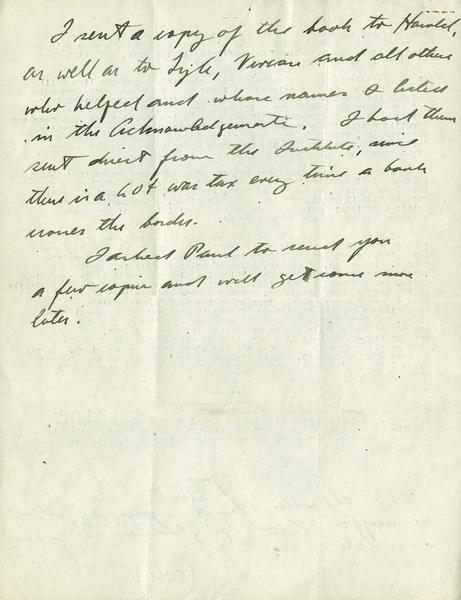 I sent a copy of the book to Harold,
as well as to Lyle, Vivian and all others
who helped and whose names I listed
in the Acknowledgements. I had them
sent direct from the Institute, since
there is a 60¢ war tax every time a book
crosses the border.
I asked Paul to send you
a few copies and will get some more
later.